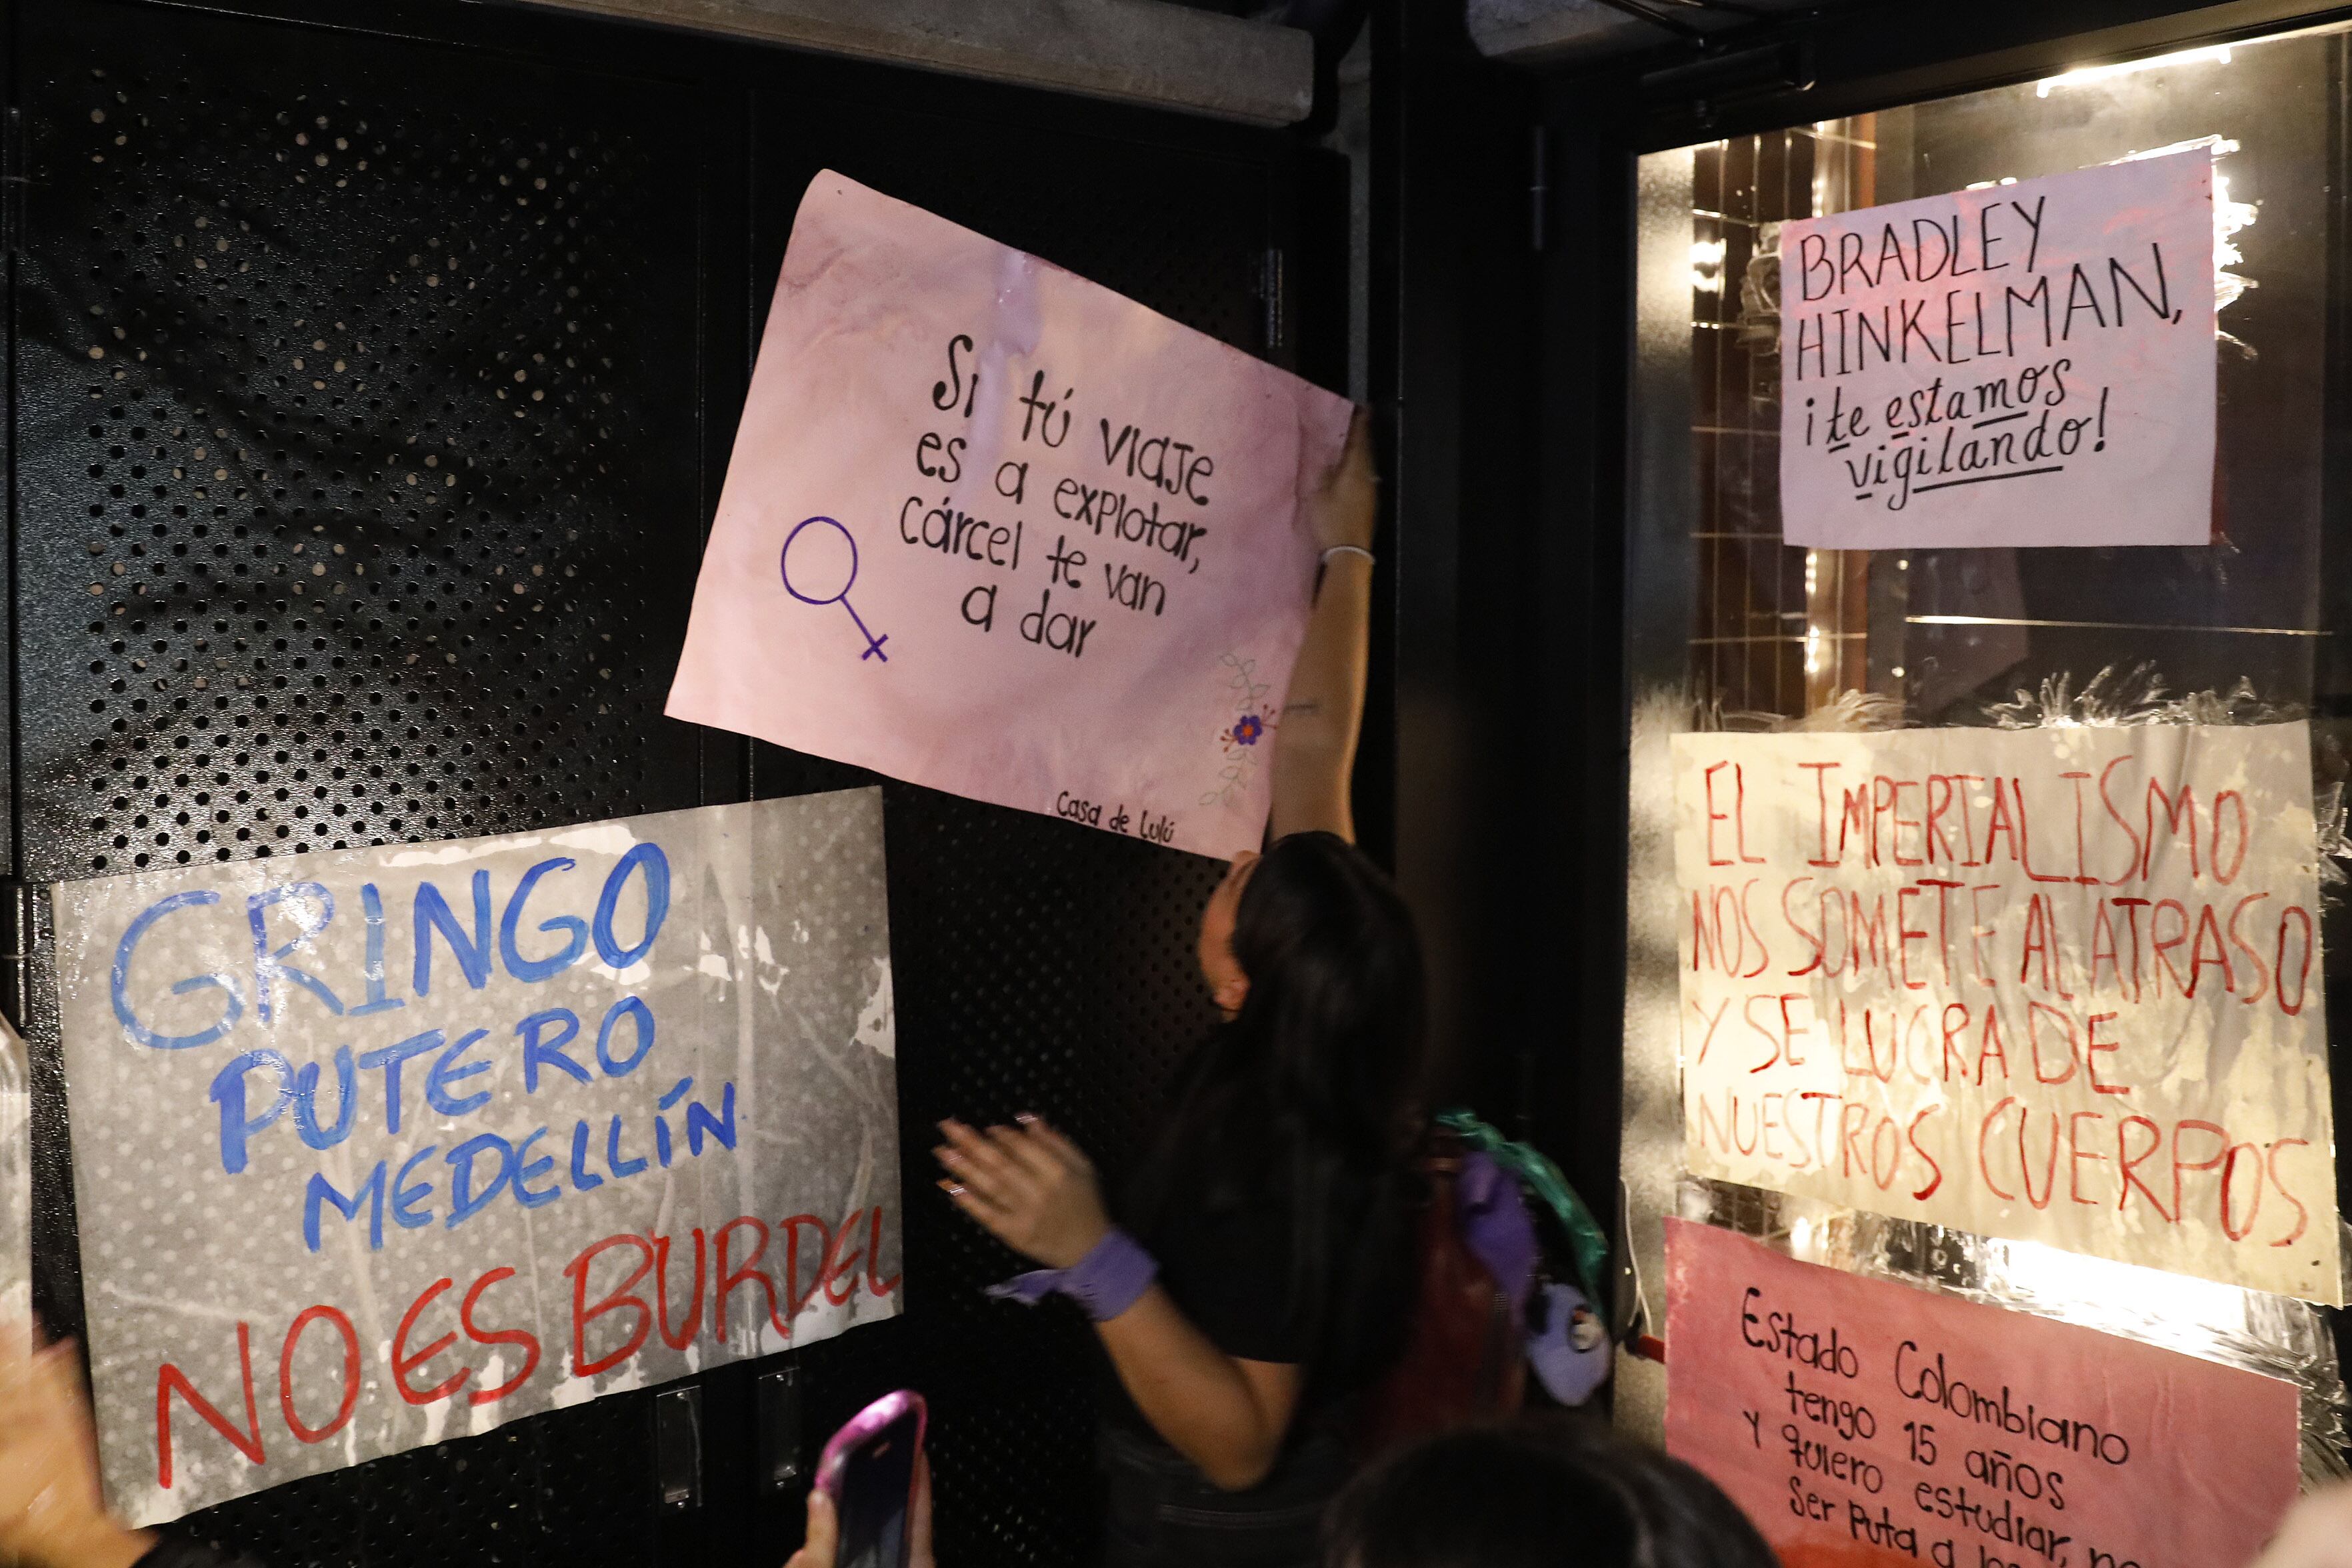 Si tú viaje
es a explotar,
cárcel te van
a dar
Casa de Lulú
GRINGO
PUTERO
MEDELLÍN
NO ES BURDEL
BRADLEY
HINKELMAN,
¡te estamos
vigilando!
EL IMPERIALISMO
NOS SOMETE AL ATRASO
Y SE LUCRA DE
NUESTROS CUERPOS
Estado Colombiano
tengo 15 años
Y quiero estudiar, no
Ser puta a los